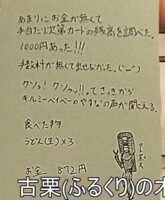 あまりにお金が無くて
手当たり次第カードの残高を調べた。
1000円あった!!!
手数料が無くて出せなかった。
クソッ! クソッ!! てさっきから
キルミーベイベーのやすなの声が聞える。
食べた物
うどん(玉)×3
お金 872円
古栗(ふるくり)の木